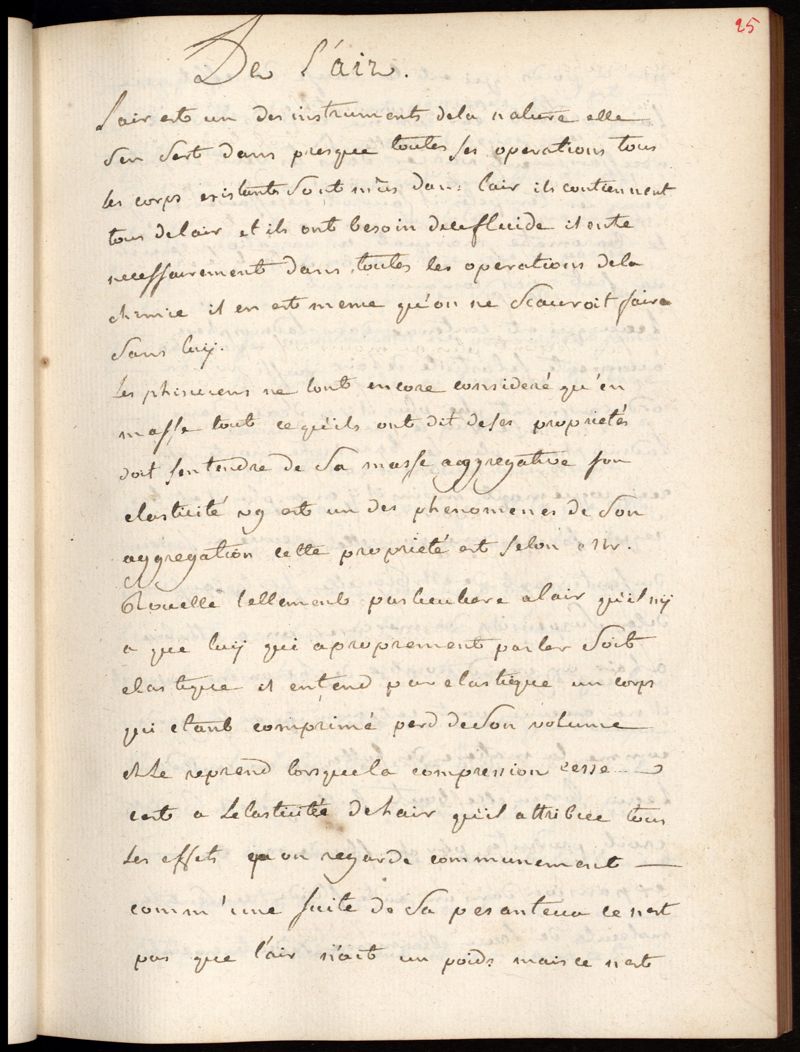 25
De L'air.
L'air est un des instruments dela nature elle
s'en sert dans presque toutes ses operations tous
les corps existants sont mûs dans l'air ils contiennent
tous delair et ils ont besoin decefluide il entre
necessairement dans toutes les operations dela
chimie il en est meme qu'on ne scauroit faire
sans luy.
Les phisiciens ne lont encore consideré qu'en
masse tout cequ'ils ont dit deses proprietés
doit sentendre de sa masse aggregative son
elasticité vg est un des phenomenes de son
aggregation cette proprieté est selon Mr.
Rouelle tellement particuliere alair qu'il ny
a que luy qui aproprement parler soit
elastique il entend par elastique un corps
qui etant comprimé perd deson volume
et le reprend lorsquela compression cesse
cest a Lelasticitée delair qu'il attribue tous
les effets qu'on regarde communement
comm'une suite de sa pesanteur ce nest
pas que l'air n'ait un poids mais ce nest